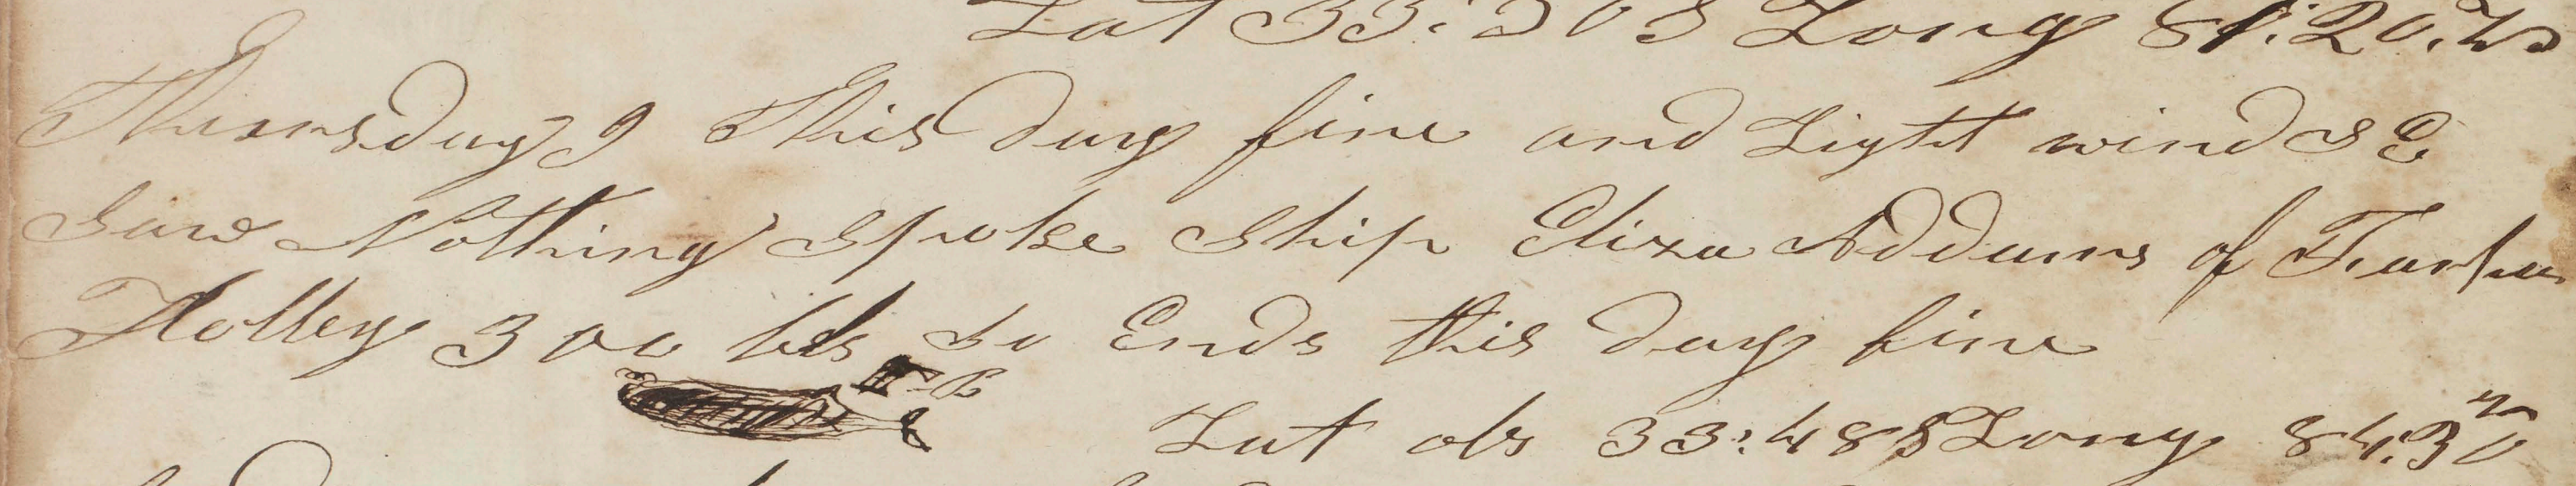 Lat 33:50 S Long 81:20.W
Thursday 9 This day fine and Light wind S E
Saw Nothing Spoke Ship Eliza Addams of
Holley 300 bls So Ends this day fine
Lat obs 33:48 S Long 84:30 W